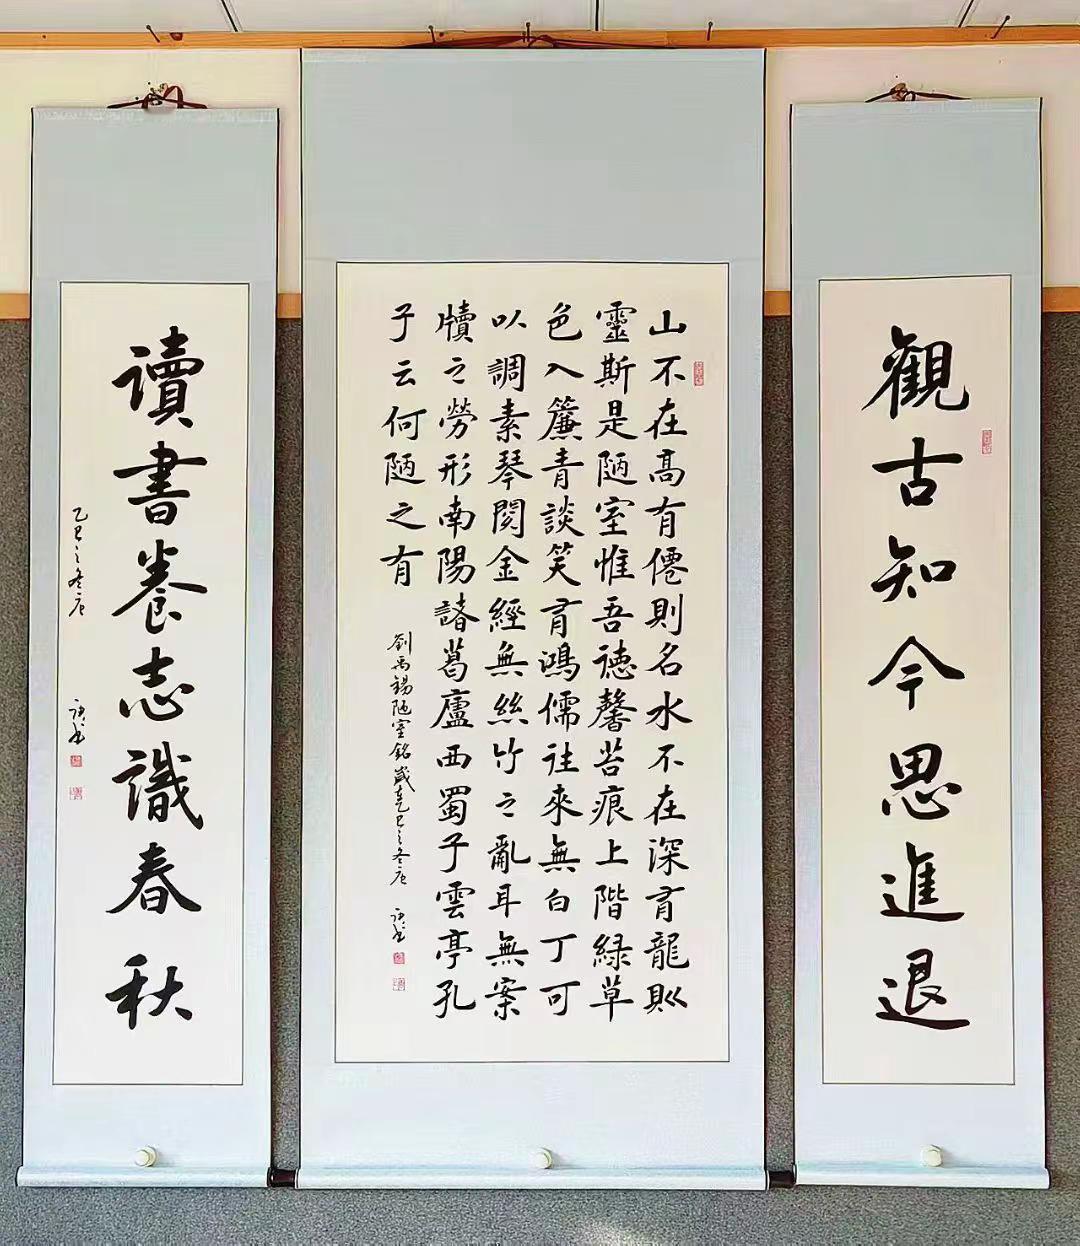 觀古知今思進退
山不在高有僊則名水不在深有龍則
靈斯是陋室惟吾德馨苔痕上階緑草
色入簾青談笑有鴻儒往來無白丁可
以調素琴閱金經無絲竹之亂耳無案
牘之勞形南陽諸葛廬西蜀子雲亭孔
子云何陋之有
劉禹錫陋室銘歲乙巳之冬
讀書養志識春秋
乙巳之冬